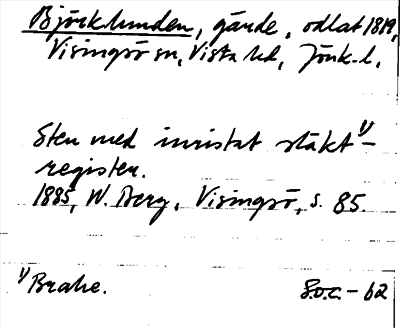 Björklunden, gärde, odlat 1819,
Visingsö sn, Vista hd, Jönk. l.
Sten med inristat släkt¹⁾-
register.
1885, W. Berg, Visingsö, s. 85.
¹⁾ Brahe.
S.O.C. - 62